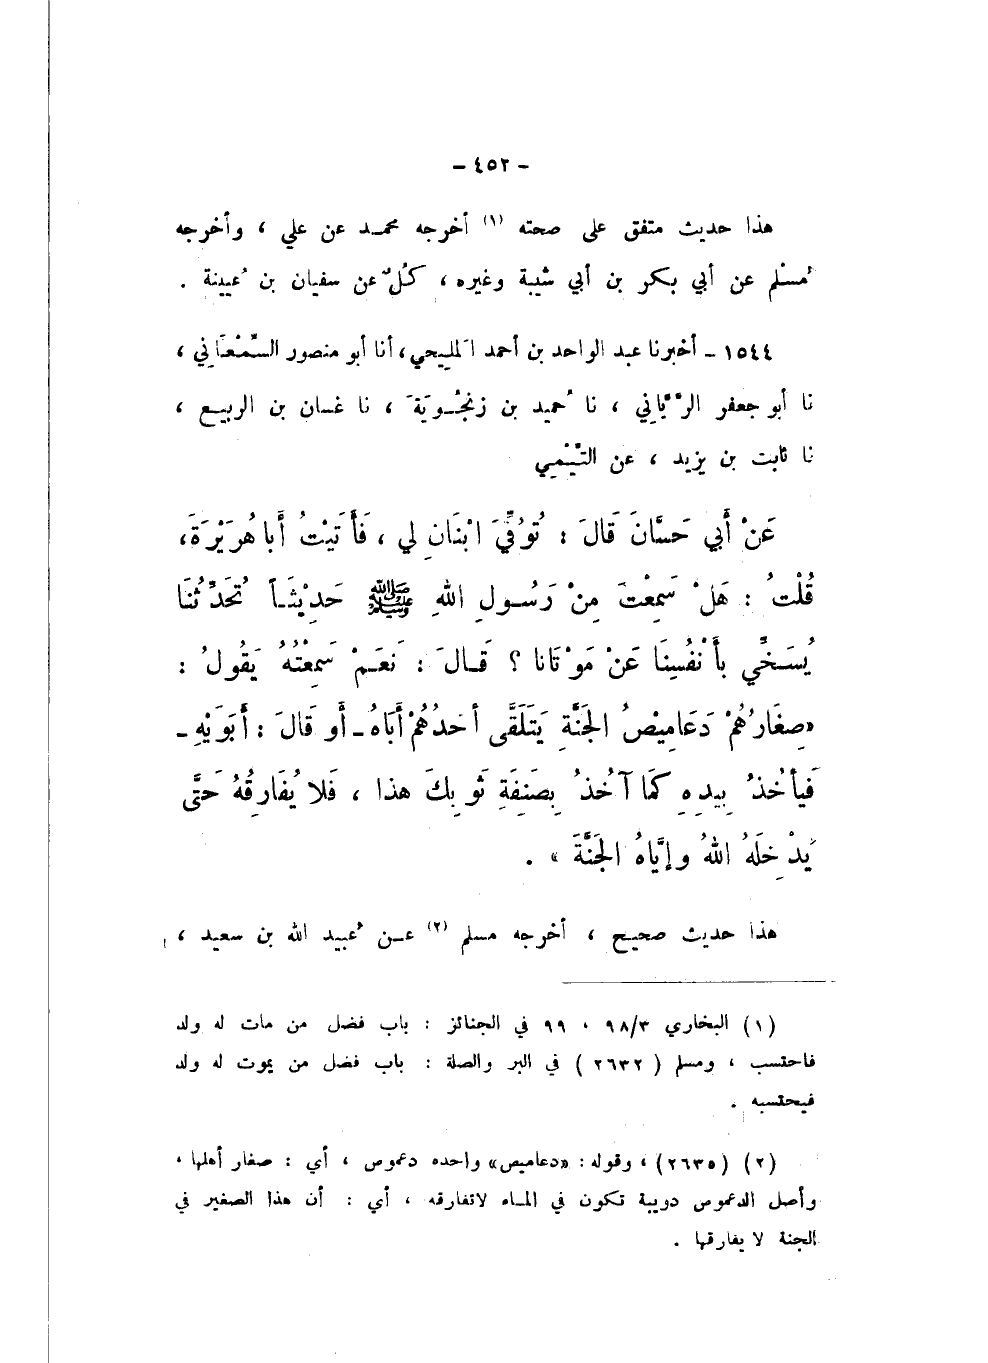 - ٤٥٢ -
هذا حديث متفق على صحته (١) أخرجه محمد عن علي ، وأخرجه
مُسْلم عن أبي بكر بن أبي شَيْبة وغيره ، كُلٌّ عن سفيان بن عُيينة .
١٥٤٤ - أخبرنا عبد الواحد بن أحمد المَلِيحي ، أنا أبو منصور السَّمْعَاني ،
نا أبو جعفر الرَّيَّاني ، نا حُميد بن زنجُويَةَ ، نا غسان بن الربيع ،
نا ثابت بن يزيد ، عن التَّيْمي
عَنْ أَبي حَسَّانَ قَالَ : تُوُفِّيَ ابْنَانِ لي ، فَأَتَيْتُ أَبا هُرَيْرَةَ،
قُلْتُ : هَلْ سَمِعْتَ مِنْ رَسُولِ اللهِ ﷺ حَدِيْثَاً تُحَدِّثُنَا
يُسَخِّي بأَنْفُسِنَا عَنْ مَوْتَانا ؟ قَالَ : نَعَمْ سَمِعْتُهُ يَقُولُ :
«صِغَارُهُمْ دَعَامِيْصُ الجَنَّةِ يَتَلَقَّى أَحَدُهُمْ أَبَاهُ - أَو قَالَ : أَبَوَيْهِ -
فَيأْخُذُ بِيَدِهِ كَمَا آخُذُ بِصَنِفَةِ ثَوبِكَ هذا ، فَلا يُفَارِقُهُ حَتَّى
يُدْخِلَهُ اللهُ وإيَّاهُ الجَنَّةَ » .
هذا حديث صحيح ، أخرجه مسلم (٢) عن عُبيد الله بن سعيد ،
(١) البخاري ٩٨/٣ ، ٩٩ في الجنائز : باب فضل من مات له ولد
فاحتسب ، ومسلم ( ٢٦٣٢ ) في البر والصلة : باب فضل من يموت له ولد
فيحتسبه .
(٢) (٢٦٣٥) ، وقوله : «دعاميص» واحده دعموص ، أي : صغار أهلها ،
وأصل الدعموص دويبة تكون في الماء لاتفارقه ، أي : أن هذا الصغير في
الجنة لا يفارقها .